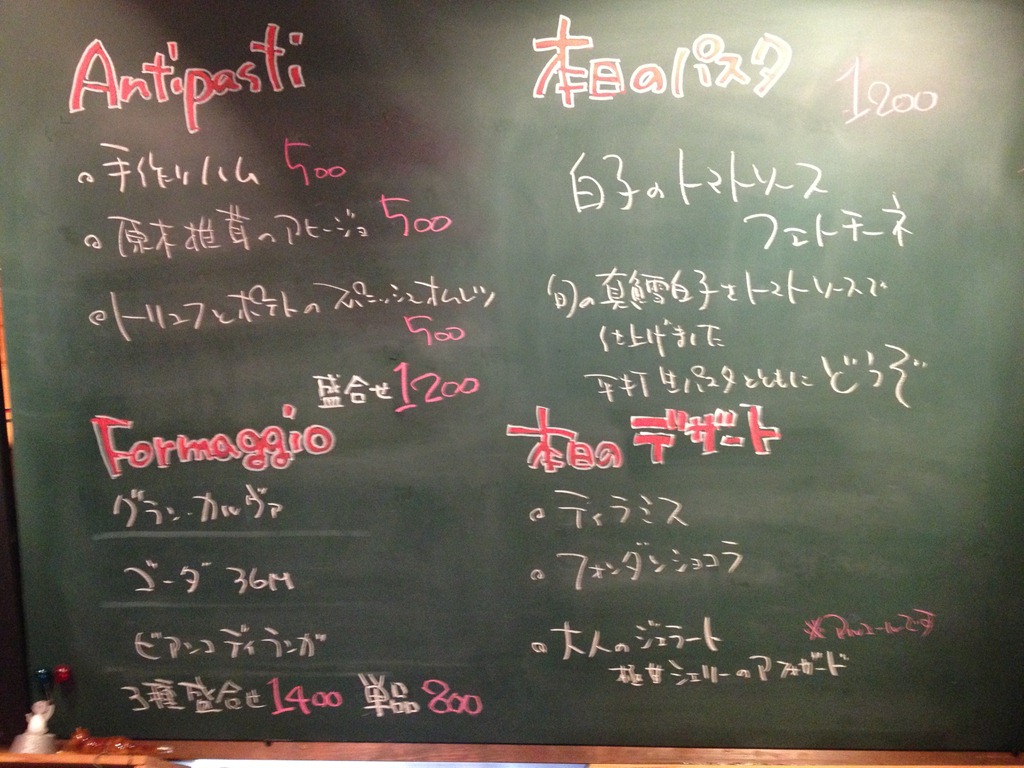 Antipasti
。手作りハム 500
。原木椎茸のアヒージョ 500
。トリュフとポテトのスパニッシュオムレツ
500
盛合せ 1200
Formaggio
グラン・カルヴァ
ゴーダ 36M
ビアンコ ディ ランガ
3種盛合せ 1400 単品 800
本日のパスタ 1200
白子のトマトソース
フェトチーネ
旬の真鱈白子をトマトソースで
仕上げました
平打生パスタとともにどうぞ
本日のデザート
。ティラミス
。フォンダンショコラ
。大人のジェラート ※アルコールです
極甘シェリーのアフォガード